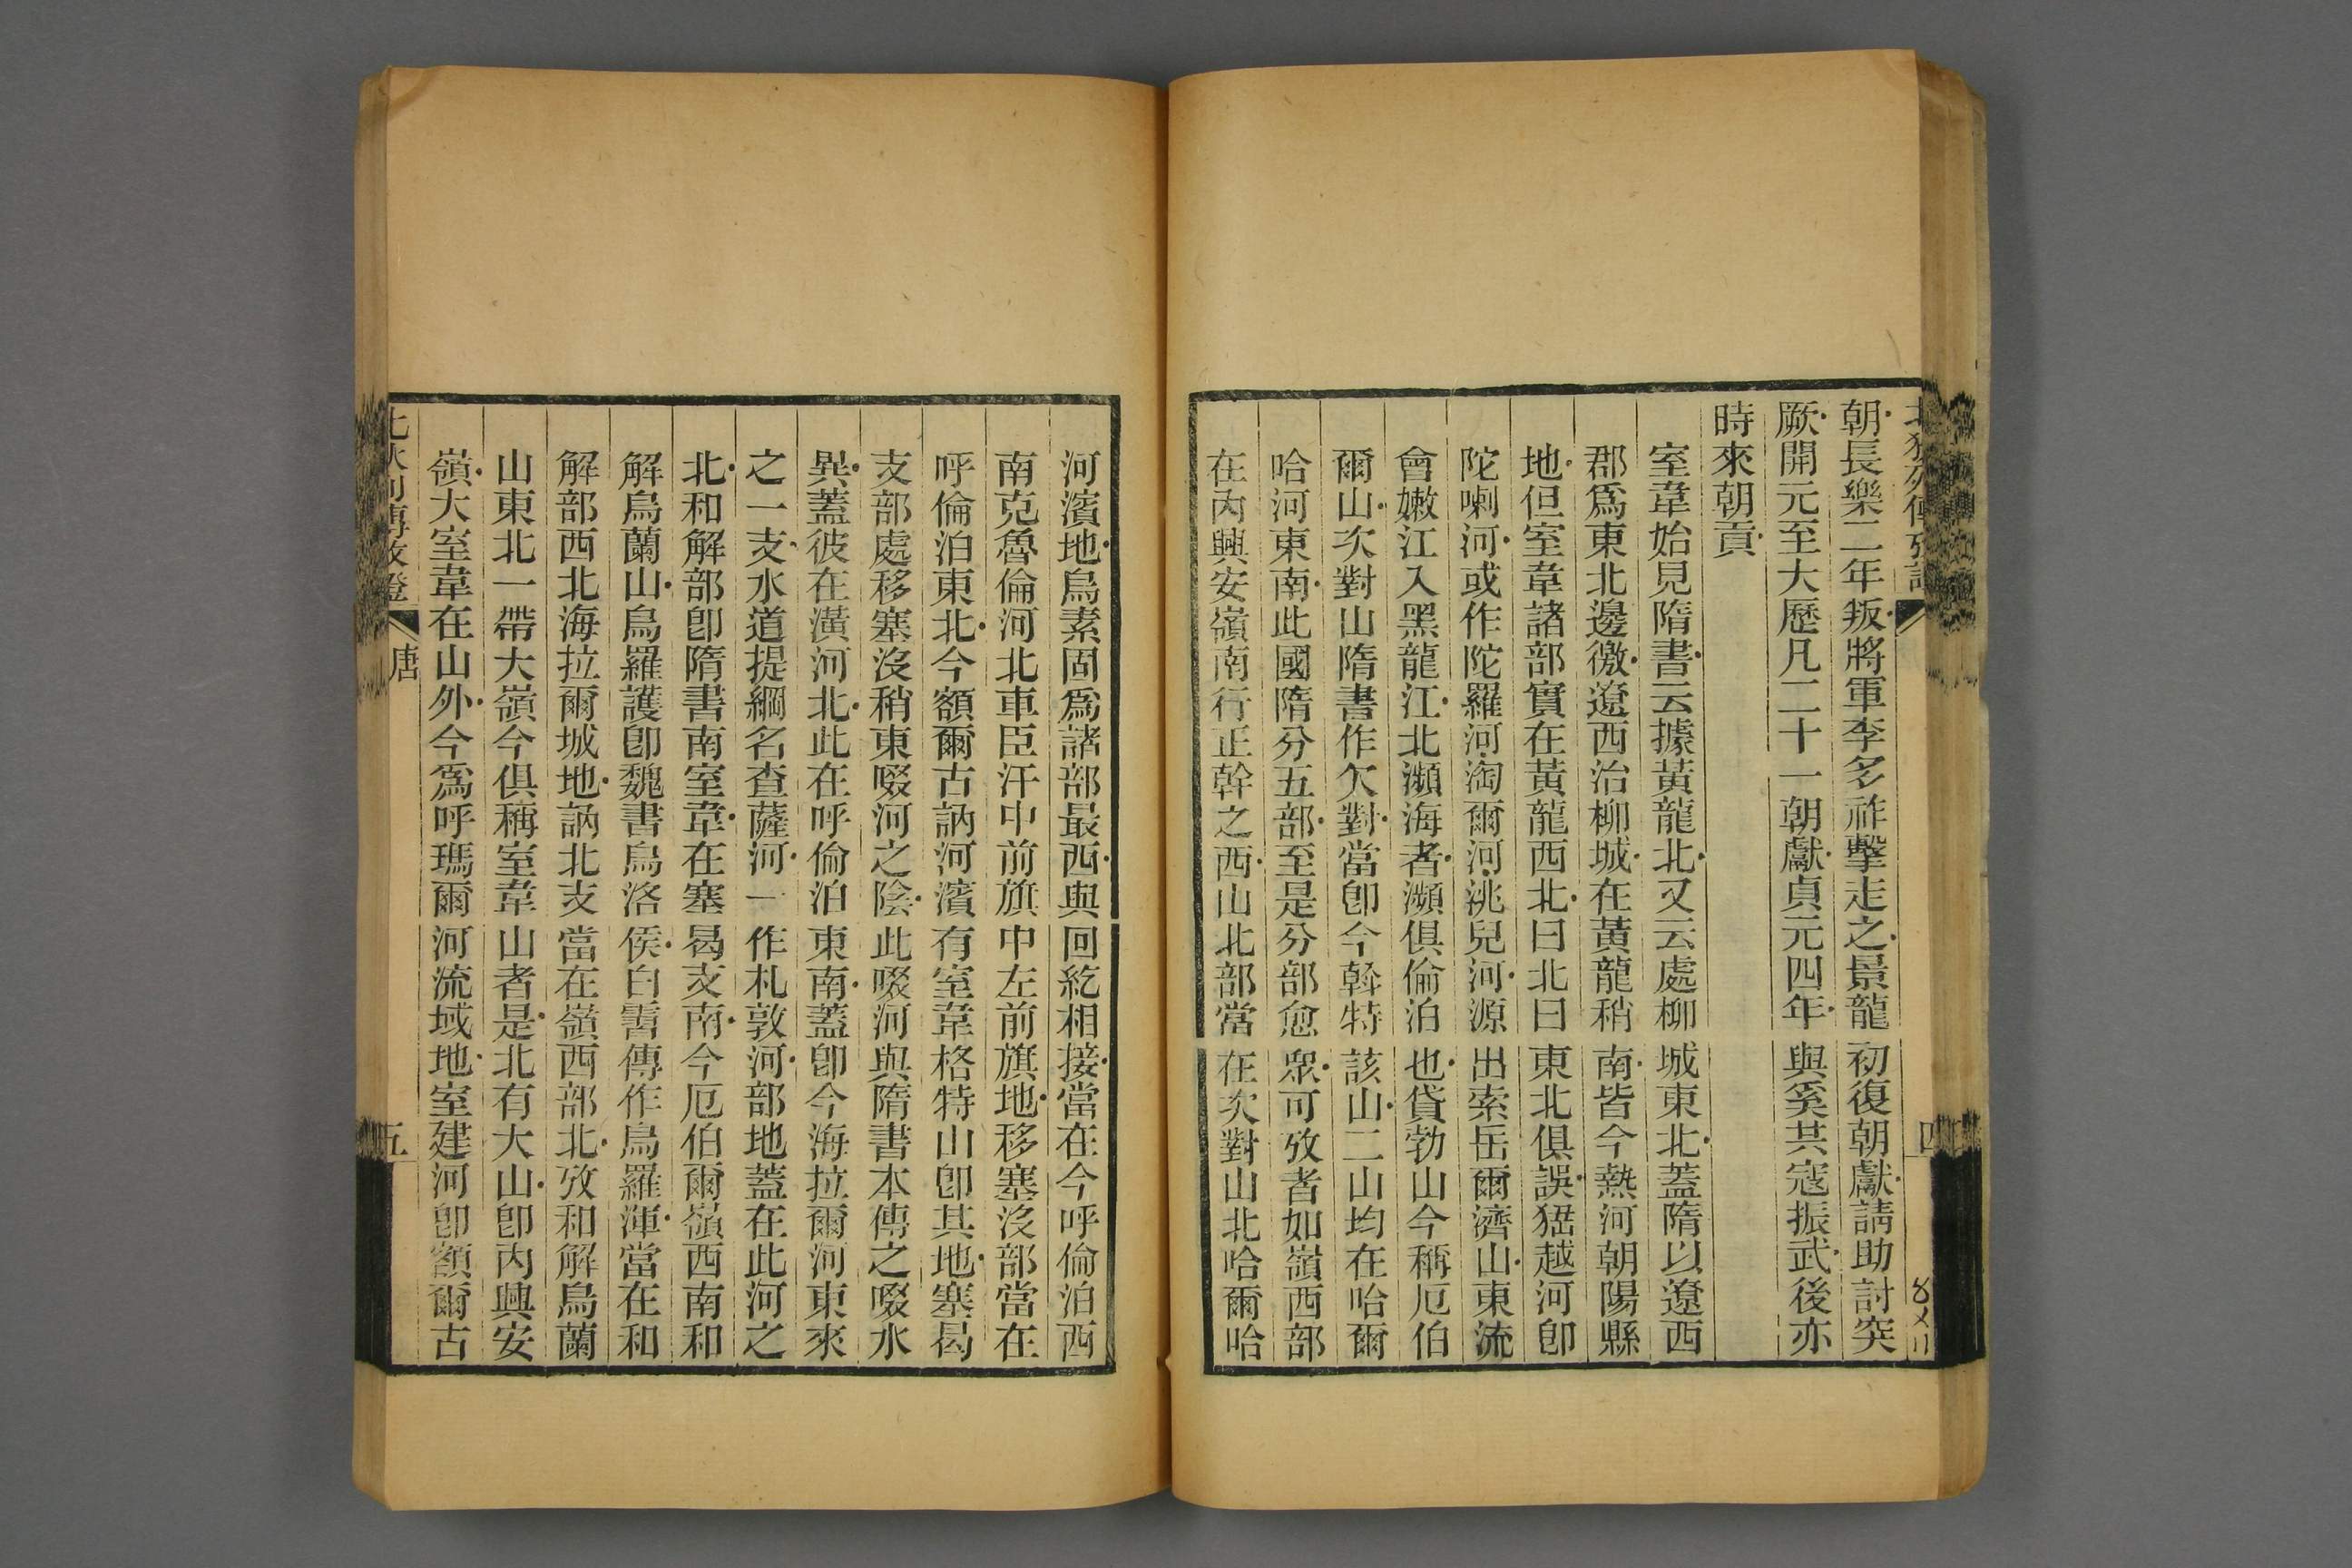 朝長樂二年叛將軍李多祚擊走之景龍初復朝獻請助討突
厥開元至大歷凡二十一朝獻貞元四年與奚共寇振武後亦
時來朝貢
室韋始見隋書云據黃龍北又云處柳城東北蓋隋以遼西
郡爲東北邊徼遼西治柳城在黃龍稍南皆今熱河朝陽縣
地但室韋諸部實在黃龍西北曰北曰東北俱誤猺越河卽
陀喇河或作陀羅河淘爾河洮兒河源出索岳爾濟山東流
會嫩江入黑龍江北瀕海者瀕俱倫泊也貸勃山今稱厄伯
爾山次對山隋書作欠對當卽今斡特該山二山均在哈爾
哈河東南此國隋分五部至是分部愈眾可攷者如嶺西部
在內興安嶺南行正幹之西山北部當在次對山北哈爾哈
四
河濱地烏素固爲諸部最西與回紇相接當在今呼倫泊西
南克魯倫河北車臣汗中前旗中左前旗地移塞沒部當在
呼倫泊東北今額爾古訥河濱有室韋格特山卽其地塞曷
支部處移塞沒稍東啜河之陰此啜河與隋書本傳之啜水
異蓋彼在潢河北此在呼倫泊東南蓋卽今海拉爾河東來
之一支水道提綱名查薩河一作札敦河部地蓋在此河之
北和解部卽隋書南室韋在塞曷支南今厄伯爾嶺西南和
解烏蘭山烏羅護卽魏書烏洛侯白霫傳作烏羅渾當在和
解部西北海拉爾城地訥北支當在嶺西部北攷和解烏蘭
山東北一帶大嶺今俱稱室韋山者是北有大山卽內興安
嶺大室韋在山外今爲呼瑪爾河流域地室建河卽額爾古
唐
五